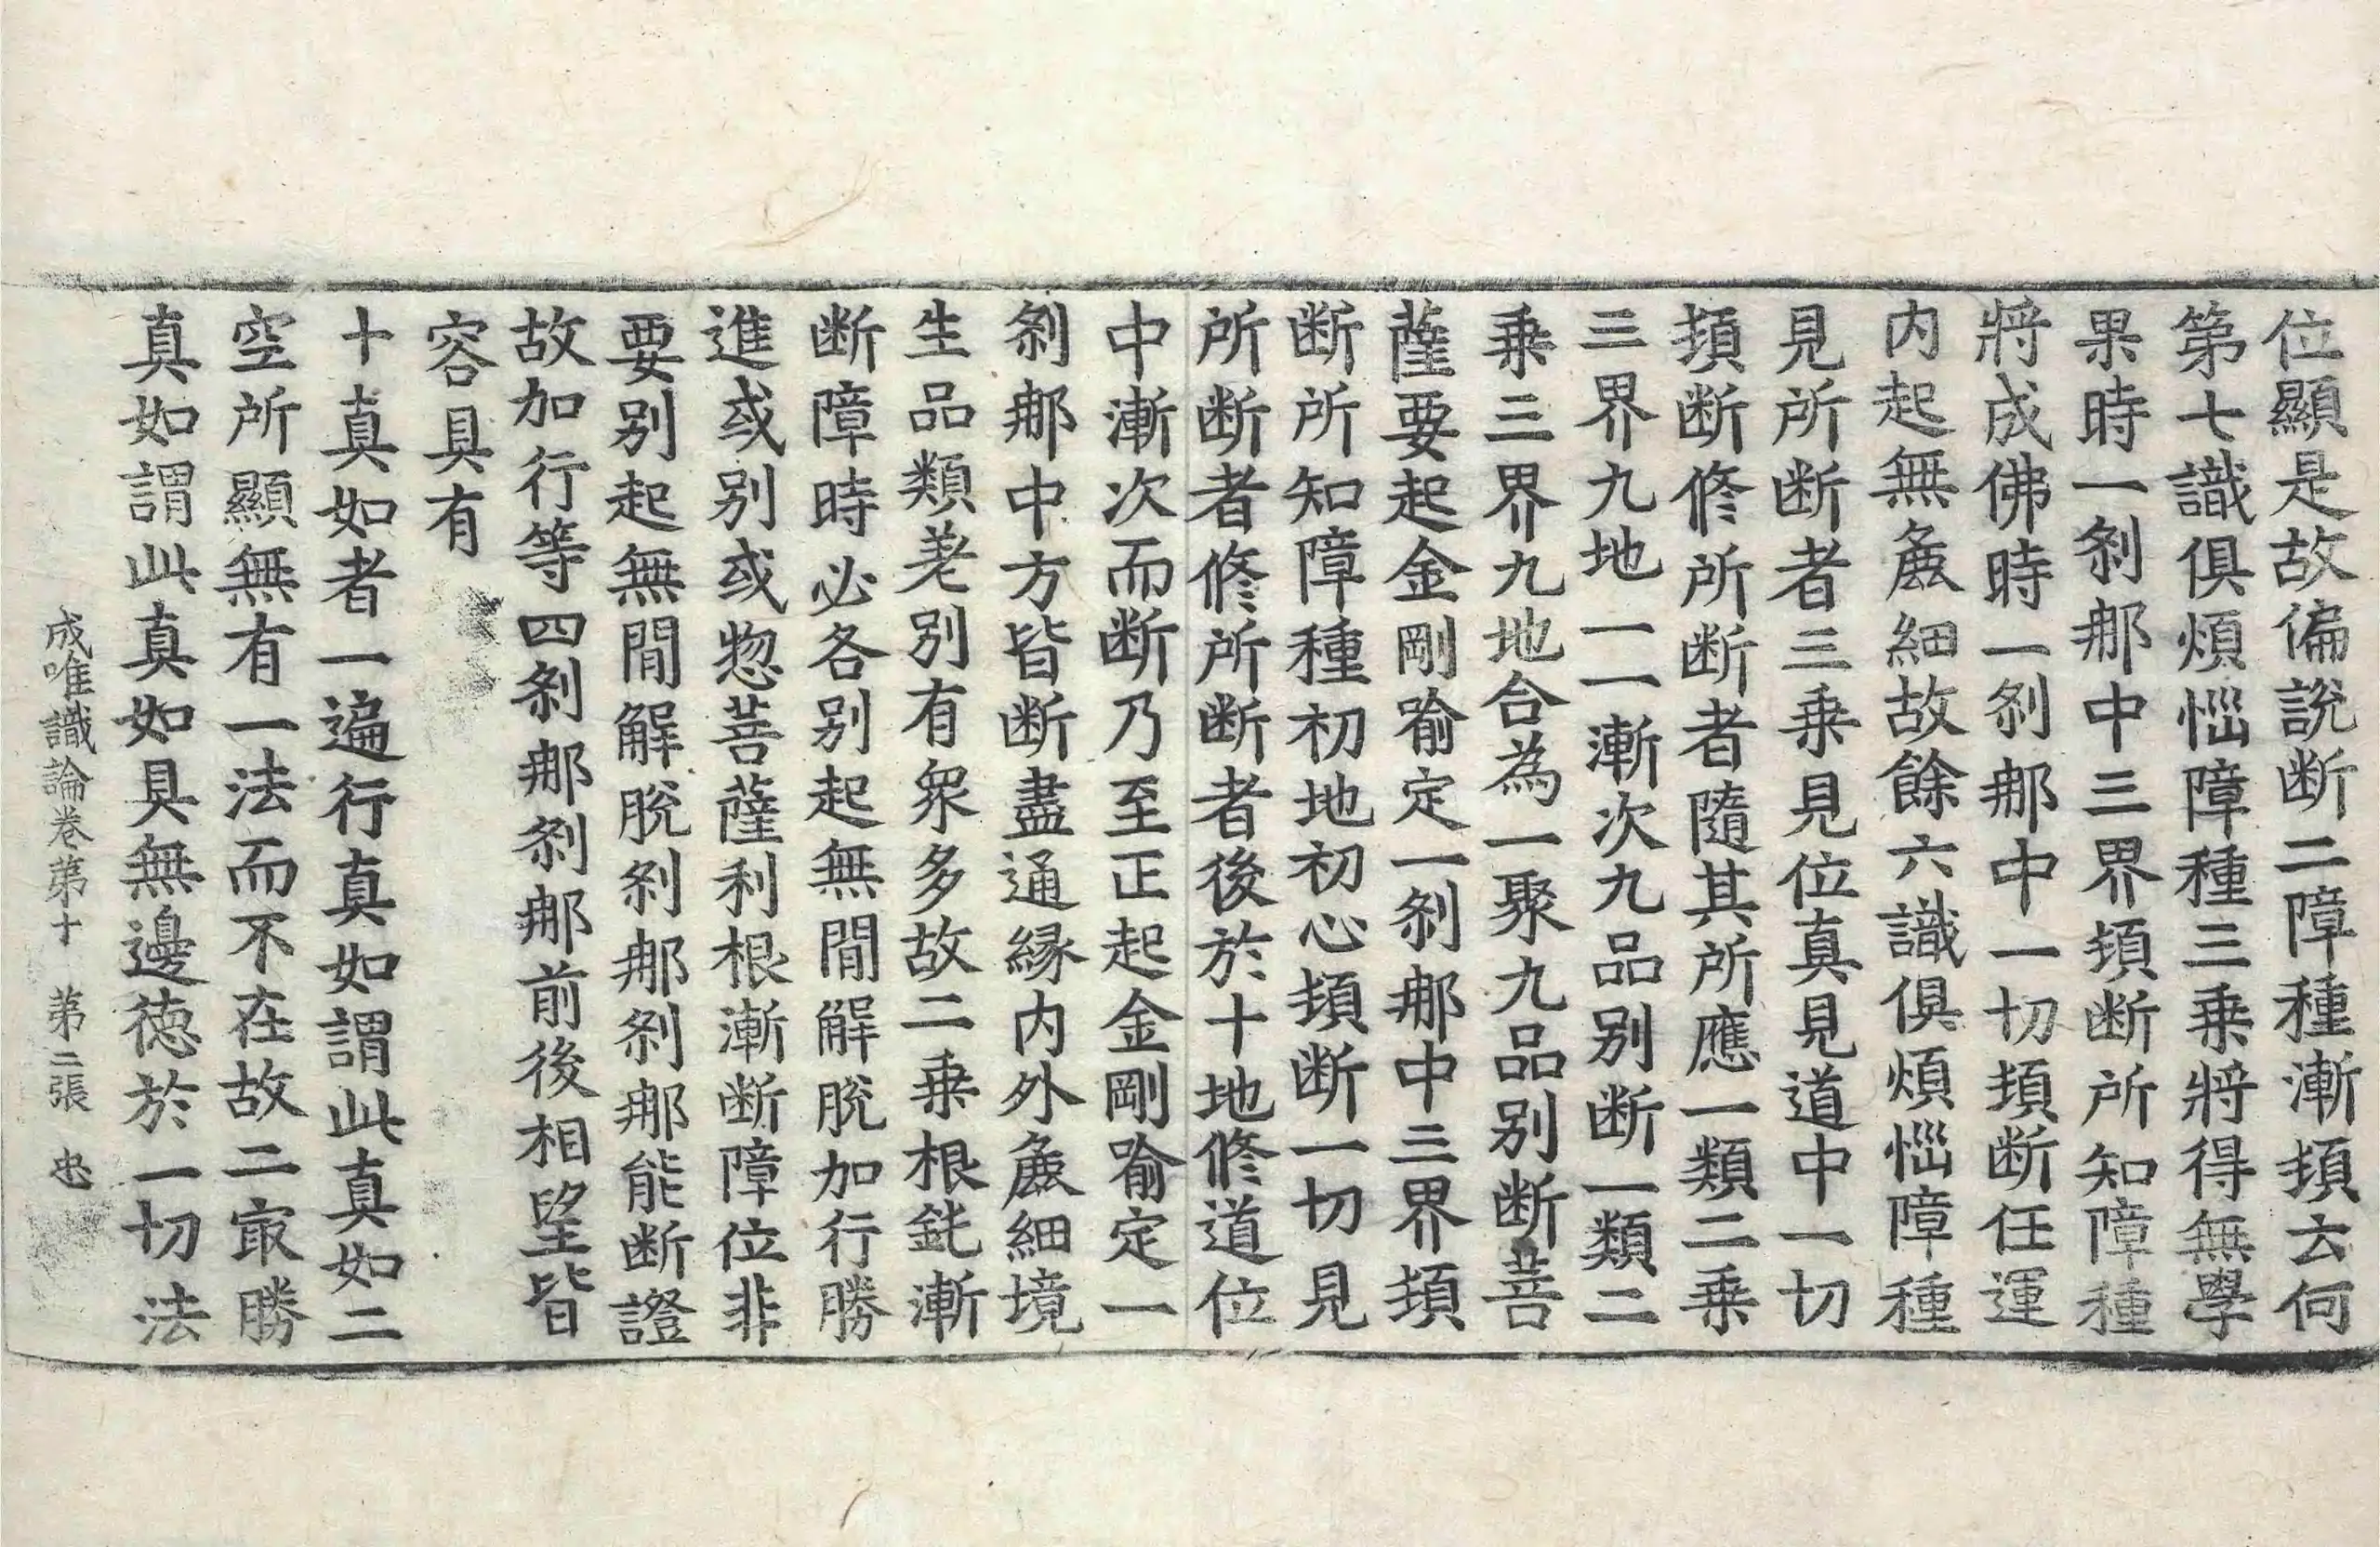 位顯是故偏說断二障種漸頓云何
第七識俱煩惱障種三乗將得無學
果時一刹那中三界頓断所知障種
將成佛時一刹那中一切頓断任運
内起無麁細故餘六識俱煩惱障種
見所断者三乗見位真見道中一切
頓断修所断者隨其所應一類二乗
三界九地一一漸次九品别断一類二
乗三界九地合為一聚九品别断菩
薩要起金剛喻定一刹那中三界頓
断所知障種初地初心頓断一切見
所断者修所断者後於十地修道位
中漸次而断乃至正起金剛喻定一
刹那中方皆断盡通緣内外麁細境
生品類差别有衆多故二乗根鈍漸
断障時必各别起無間解脫加行勝
進或别或惣菩薩利根漸断障位非
要别起無間解脫刹那刹那能断證
故加行等四刹那刹那前後相望皆
容具有
十真如者一遍行真如謂此真如二
空所顯無有一法而不在故二冣勝
真如謂此真如具無邊德於一切法
成唯識論卷第十　第二張　忠